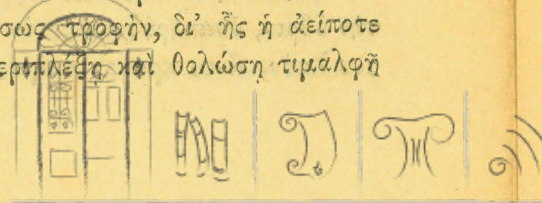 σως τροφὴν, δι' ἧς ἡ ἀείποτε
εριπλέξῃ καὶ θολώσῃ τιμαλφῆ